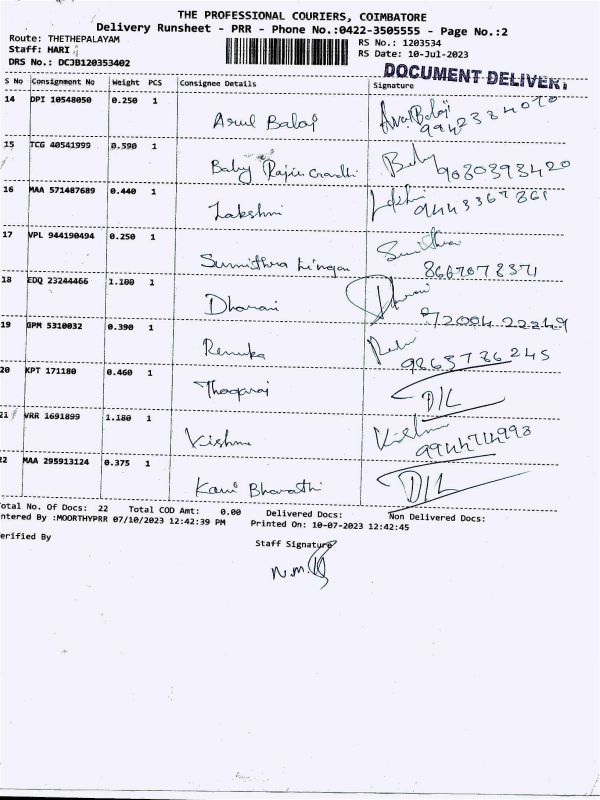 THE PROFESSIONAL COURIERS, COIMBATORE
Delivery Runsheet - PRR - Phone No.:0422-3505555 - Page No.:2
Route: THETHEPALAYAM
RS No.: 1203534
Staff: HARI
RS Date: 10-Jul-2023
DRS No.: DCJB120353402
DOCUMENT DELIVERY
S No Consignment No Weight PCS Consignee Details Signature
14 DPI 10548050 0.250 1 Arul Balaji
15 TCG 40541999 0.590 1 Baby 9080393420
16 MAA 571487689 0.440 1 Lakshmi
17 VPL 944190494 0.250 1 Sumithra Lingam Sumithra
18 EDQ 23244466 1.180 1 Dharani Dharani
19 GPM 5310032 0.390 1 Renuka 9863736245
20 KPT 171180 0.460 1 Thagaraj D/L
21 VRR 1691899 1.180 1 Kishna
22 MAA 295913124 0.375 1 Kavi Bharathi D/L
otal No. Of Docs: 22 Total COD Amt: 0.00 Delivered Docs: Non Delivered Docs:
ntered By :MOORTHYPRR 07/10/2023 12:42:39 PM Printed On: 10-07-2023 12:42:45
erified By
Staff Signature